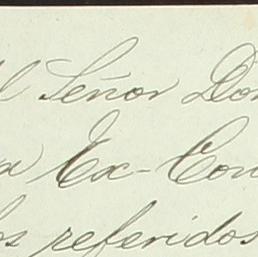 Señor Don
Ex-Con
los referidos